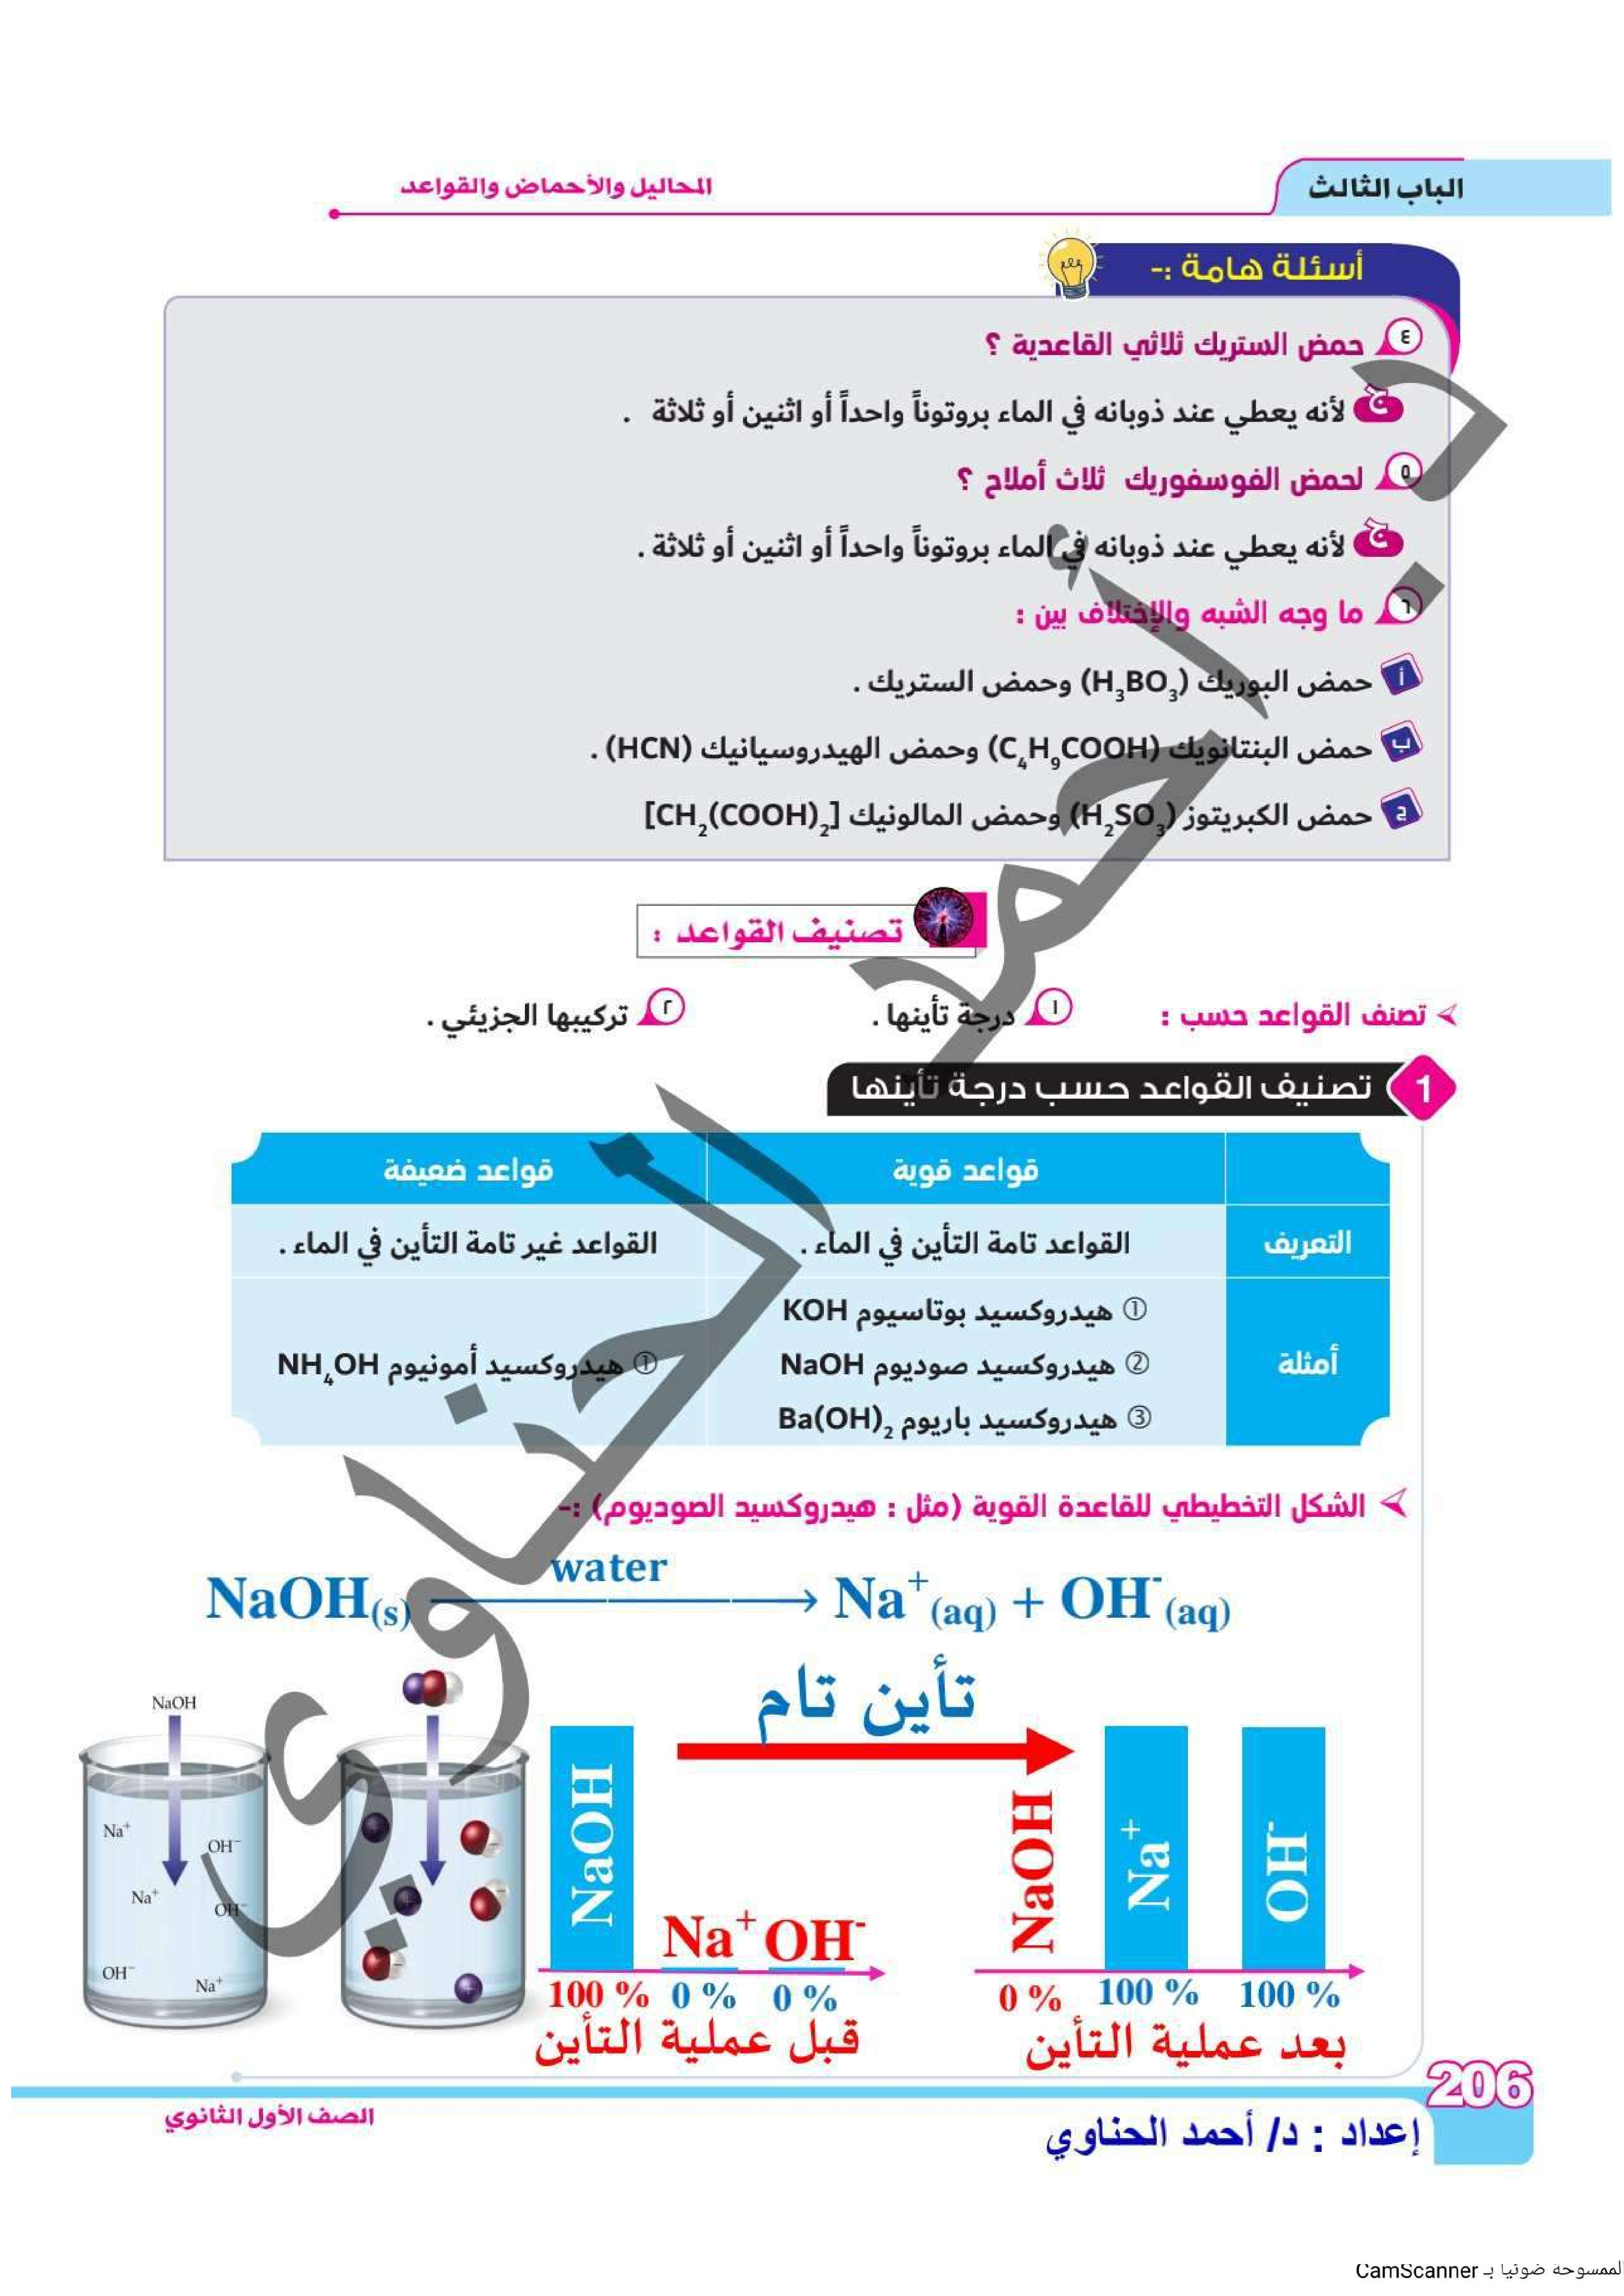 الباب الثالث
المحاليل والأحماض والقواعد
أسئلة هامة :-
٤ حمض الستريك ثلاثي القاعدية ؟
ج لأنه يعطي عند ذوبانه في الماء بروتوناً واحداً أو اثنين أو ثلاثة .
٥ لحمض الفوسفوريك ثلاث أملاح ؟
ج لأنه يعطي عند ذوبانه في الماء بروتوناً واحداً أو اثنين أو ثلاثة .
٦ ما وجه الشبه والإختلاف بين :
أ حمض البوريك (H₃BO₃) وحمض الستريك .
ب حمض البنتانويك (C₄H₉COOH) وحمض الهيدروسيانيك (HCN) .
ج حمض الكبريتوز (H₂SO₃) وحمض المالونيك [CH₂(COOH)₂]
تصنيف القواعد :
تصنف القواعد حسب : ١ درجة تأينها . ٢ تركيبها الجزيئي .
1 تصنيف القواعد حسب درجة تأينها
قواعد قوية قواعد ضعيفة
التعريف القواعد تامة التأين في الماء . القواعد غير تامة التأين في الماء .
أمثلة
① هيدروكسيد بوتاسيوم KOH
② هيدروكسيد صوديوم NaOH
③ هيدروكسيد باريوم Ba(OH)₂
① هيدروكسيد أمونيوم NH₄OH
الشكل التخطيطي للقاعدة القوية (مثل : هيدروكسيد الصوديوم) :-
water
NaOH(s) → Na⁺(aq) + OH⁻(aq)
تأين تام
NaOH
Na⁺
OH⁻
Na⁺
OH⁻
OH⁻
Na⁺
NaOH Na⁺ OH⁻
100 % 0 % 0 %
قبل عملية التأين
NaOH Na⁺ OH⁻
0 % 100 % 100 %
بعد عملية التأين
206
الصف الأول الثانوي
إعداد : د/ أحمد الحناوي
د. أحمد الحناوي
الممسوحة ضوئيا بـ CamScanner